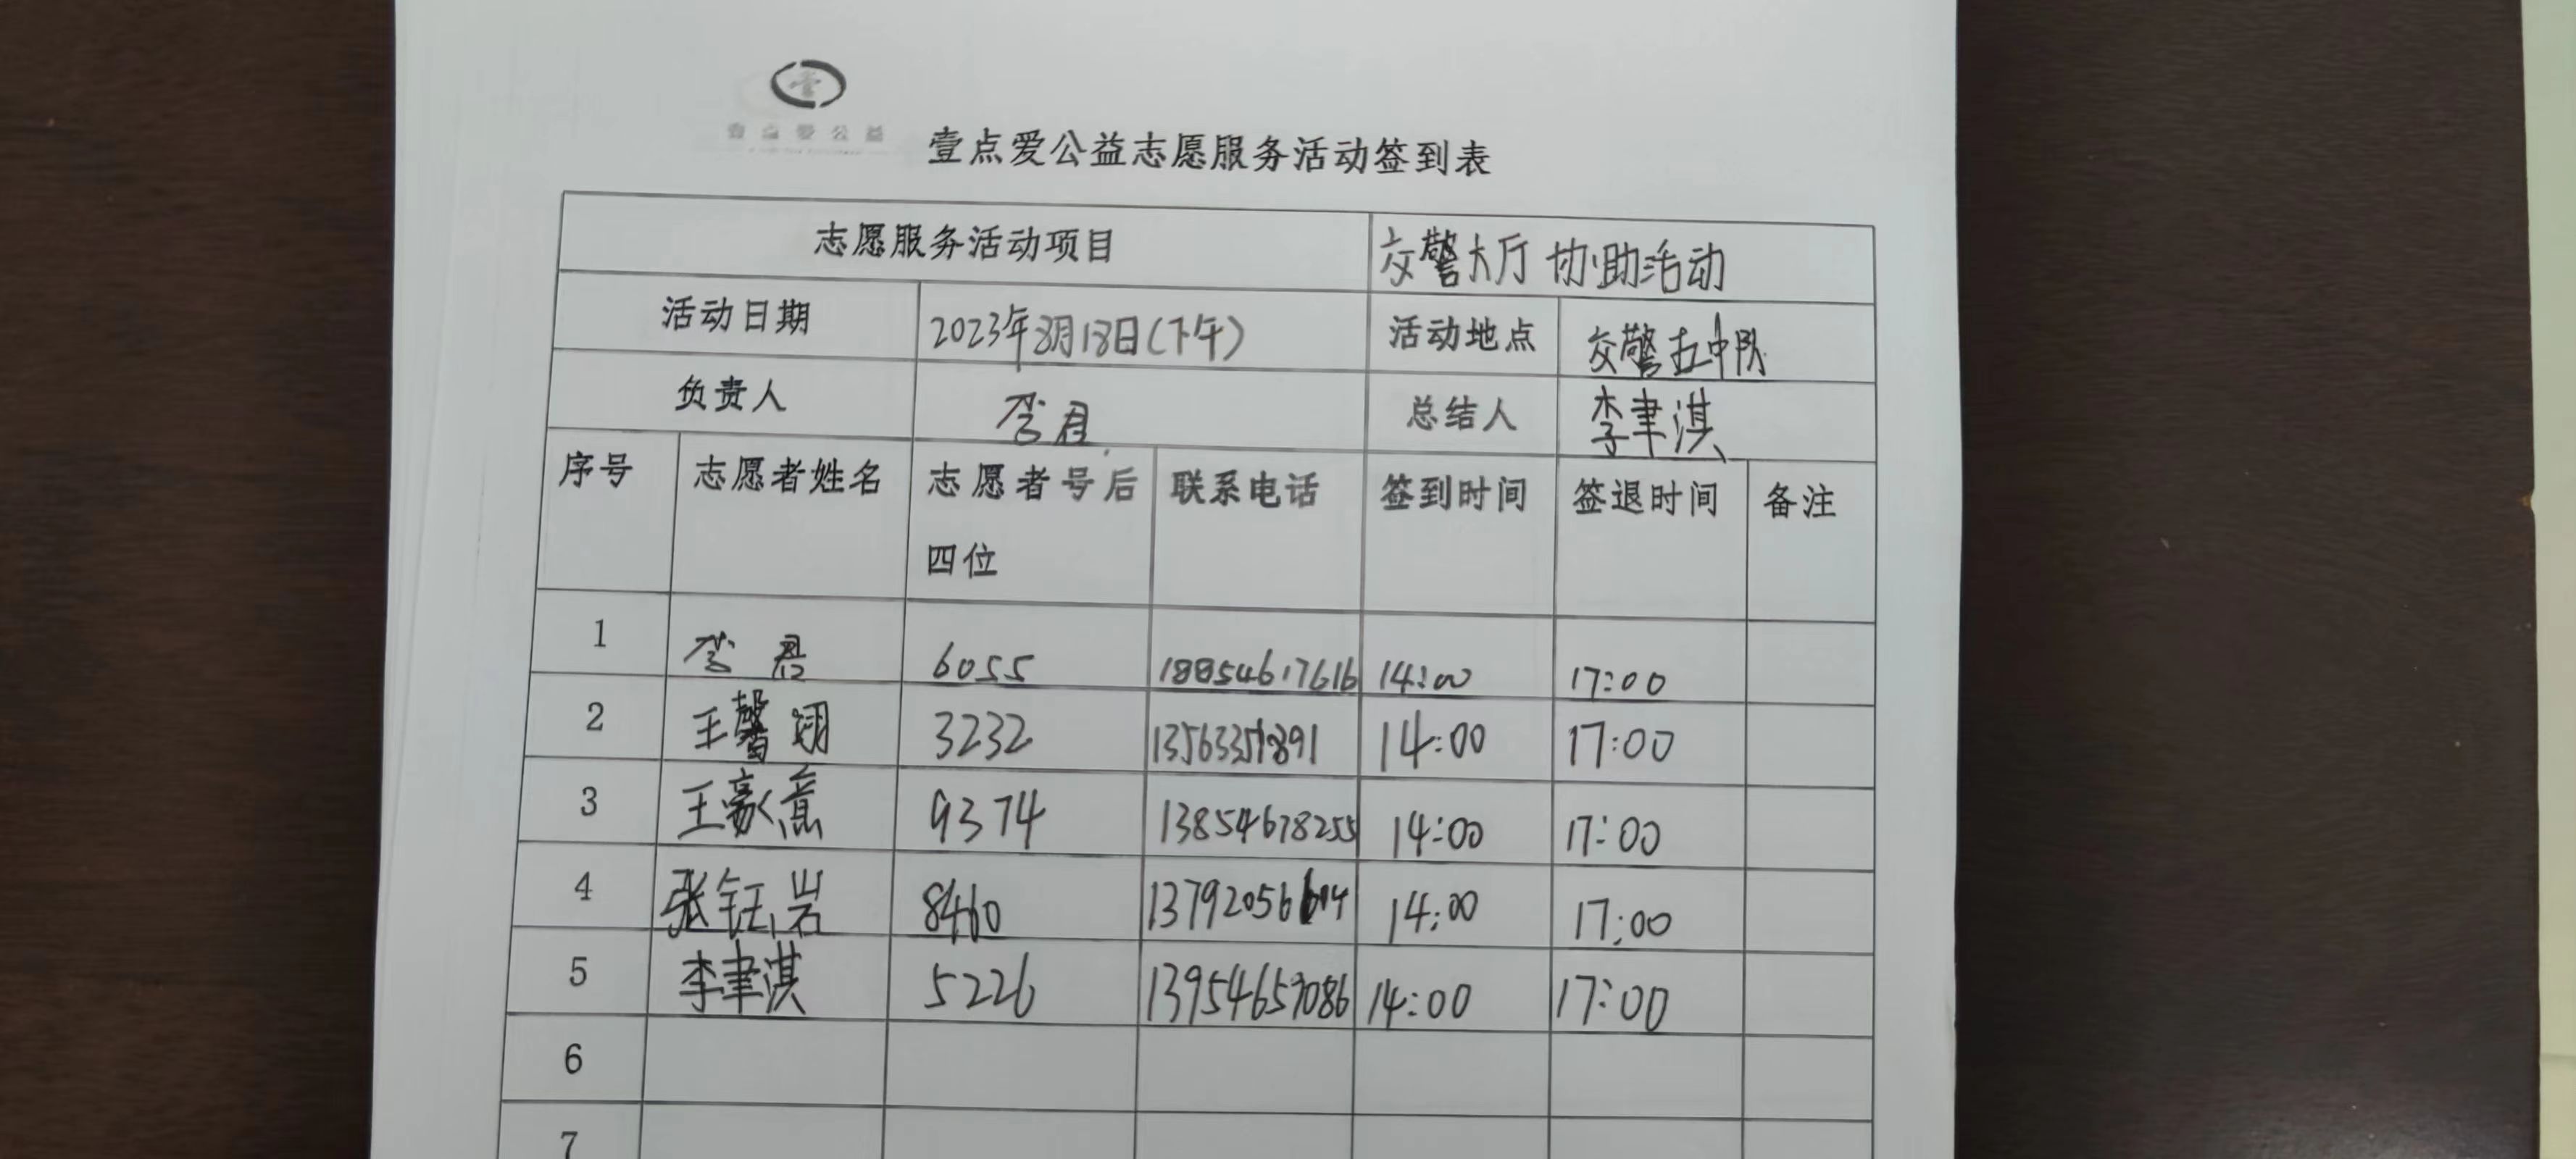 壹点爱公益
壹点爱公益志愿服务活动签到表
志愿服务活动项目 交警大厅 协助活动
活动日期 2023年8月18日(下午) 活动地点 交警五中队
负责人 李君 总结人 李聿淇
序号 志愿者姓名 志愿者号后四位 联系电话 签到时间 签退时间 备注
1 李君 6055 18854617616 14:00 17:00
2 王馨翊 3232 14:00 17:00
3 王豪意 9374 13854678255 14:00 17:00
4 张钰岩 8460 14:00 17:00
5 李聿淇 5226 13954659086 14:00 17:00
6
7